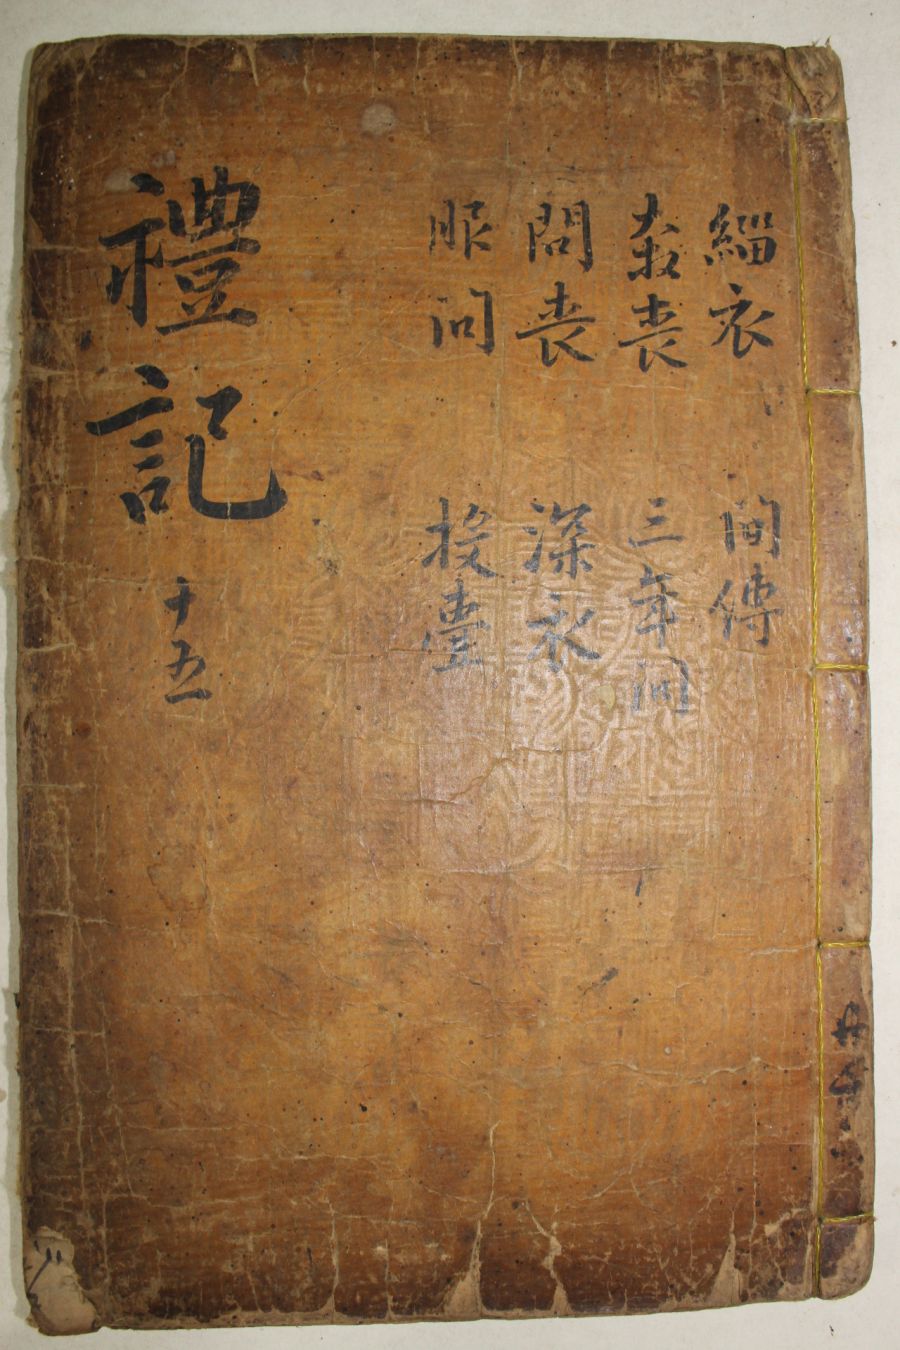 緇衣
奔喪
問喪
服問
間傳
三年問
深衣
投壺
禮記
十五